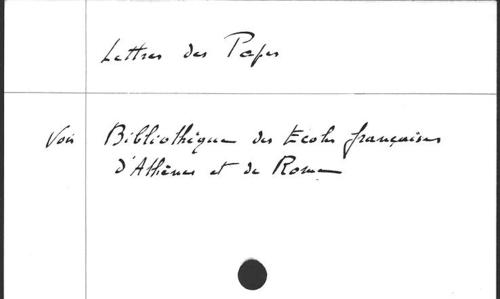 Lettres des Papes
Voir Bibliothèque des Ecoles françaises
d'Athènes et de Rome